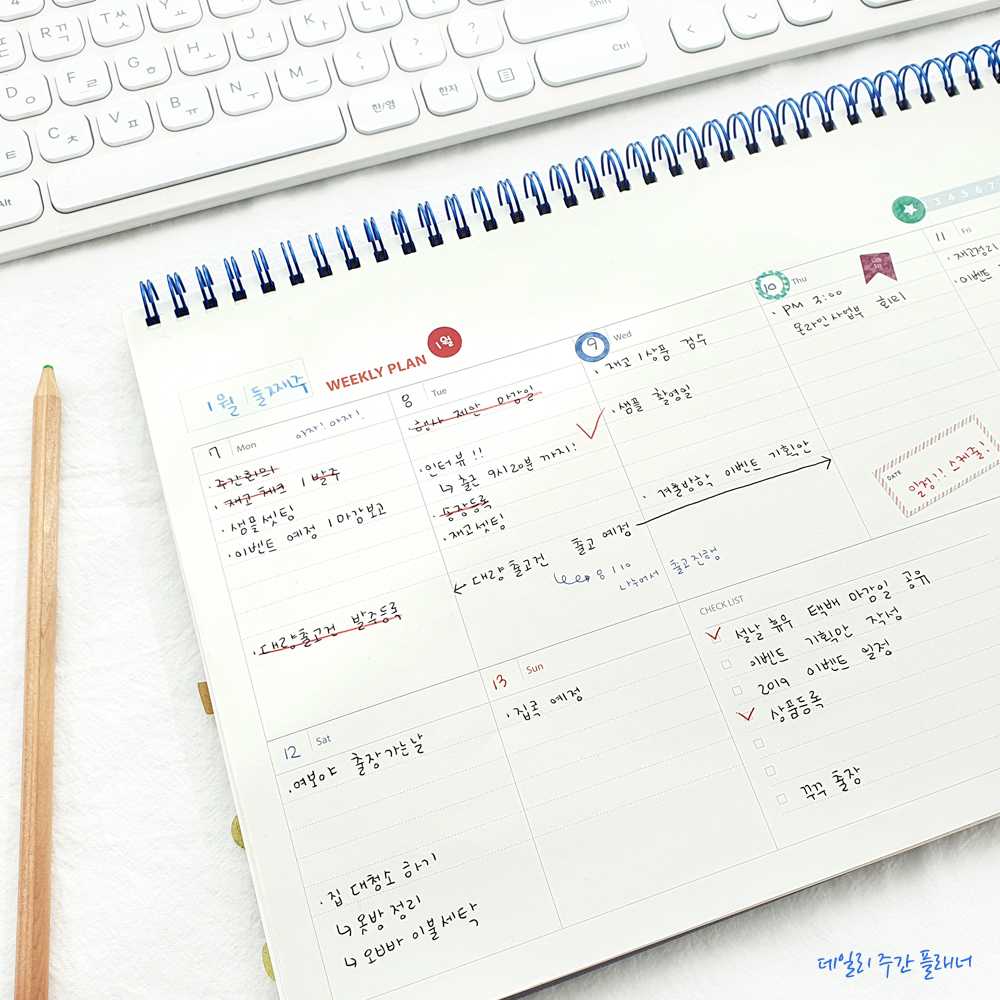 1월 둘째주
WEEKLY PLAN
1월
7 Mon
아자! 아자!
· 주간회의
· 재고 체크 / 발주
· 샘플셋팅
· 이벤트 예정 / 마감보고
· 대량출고건 발주등록
8 Tue
· 행사 제안 마감일
· 인터뷰!!
↳ 출근 9시20분 까지!
· 송장등록
· 재고셋팅
← 대량출고건 출고 예정
8 / 10
나누어서 출고진행
9 Wed
· 재고 / 상품 검수
· 샘플 촬영일
· 겨울방학 이벤트 기획안
10 Thu
· PM 3:00
온라인사업부 회의
DATE
일정!! 스케줄!
11 Fri
· 재고정리
· 이벤트
3 4 5 6 7
12 Sat
· 여보야 출장가는날
· 집 대청소 하기
↳ 옷방 정리
↳ 오빠방 이불세탁
13 Sun
· 집콕 예정
CHECK LIST
설날 휴우 택배 마감일 공유
이벤트 기획안 작성
2019 이벤트 일정
상품등록
꾸꾸 출장
데일리 주간 플래너
Shift
R ㄲ
T ㅆ
Y ㅛ
K ㅏ
L ㅣ
D ㅇ
F ㄹ
G ㅎ
H ㅗ
J ㅓ
C ㅊ
V ㅍ
B ㅠ
N ㅜ
M ㅡ
한/영
한자
Ctrl
Alt